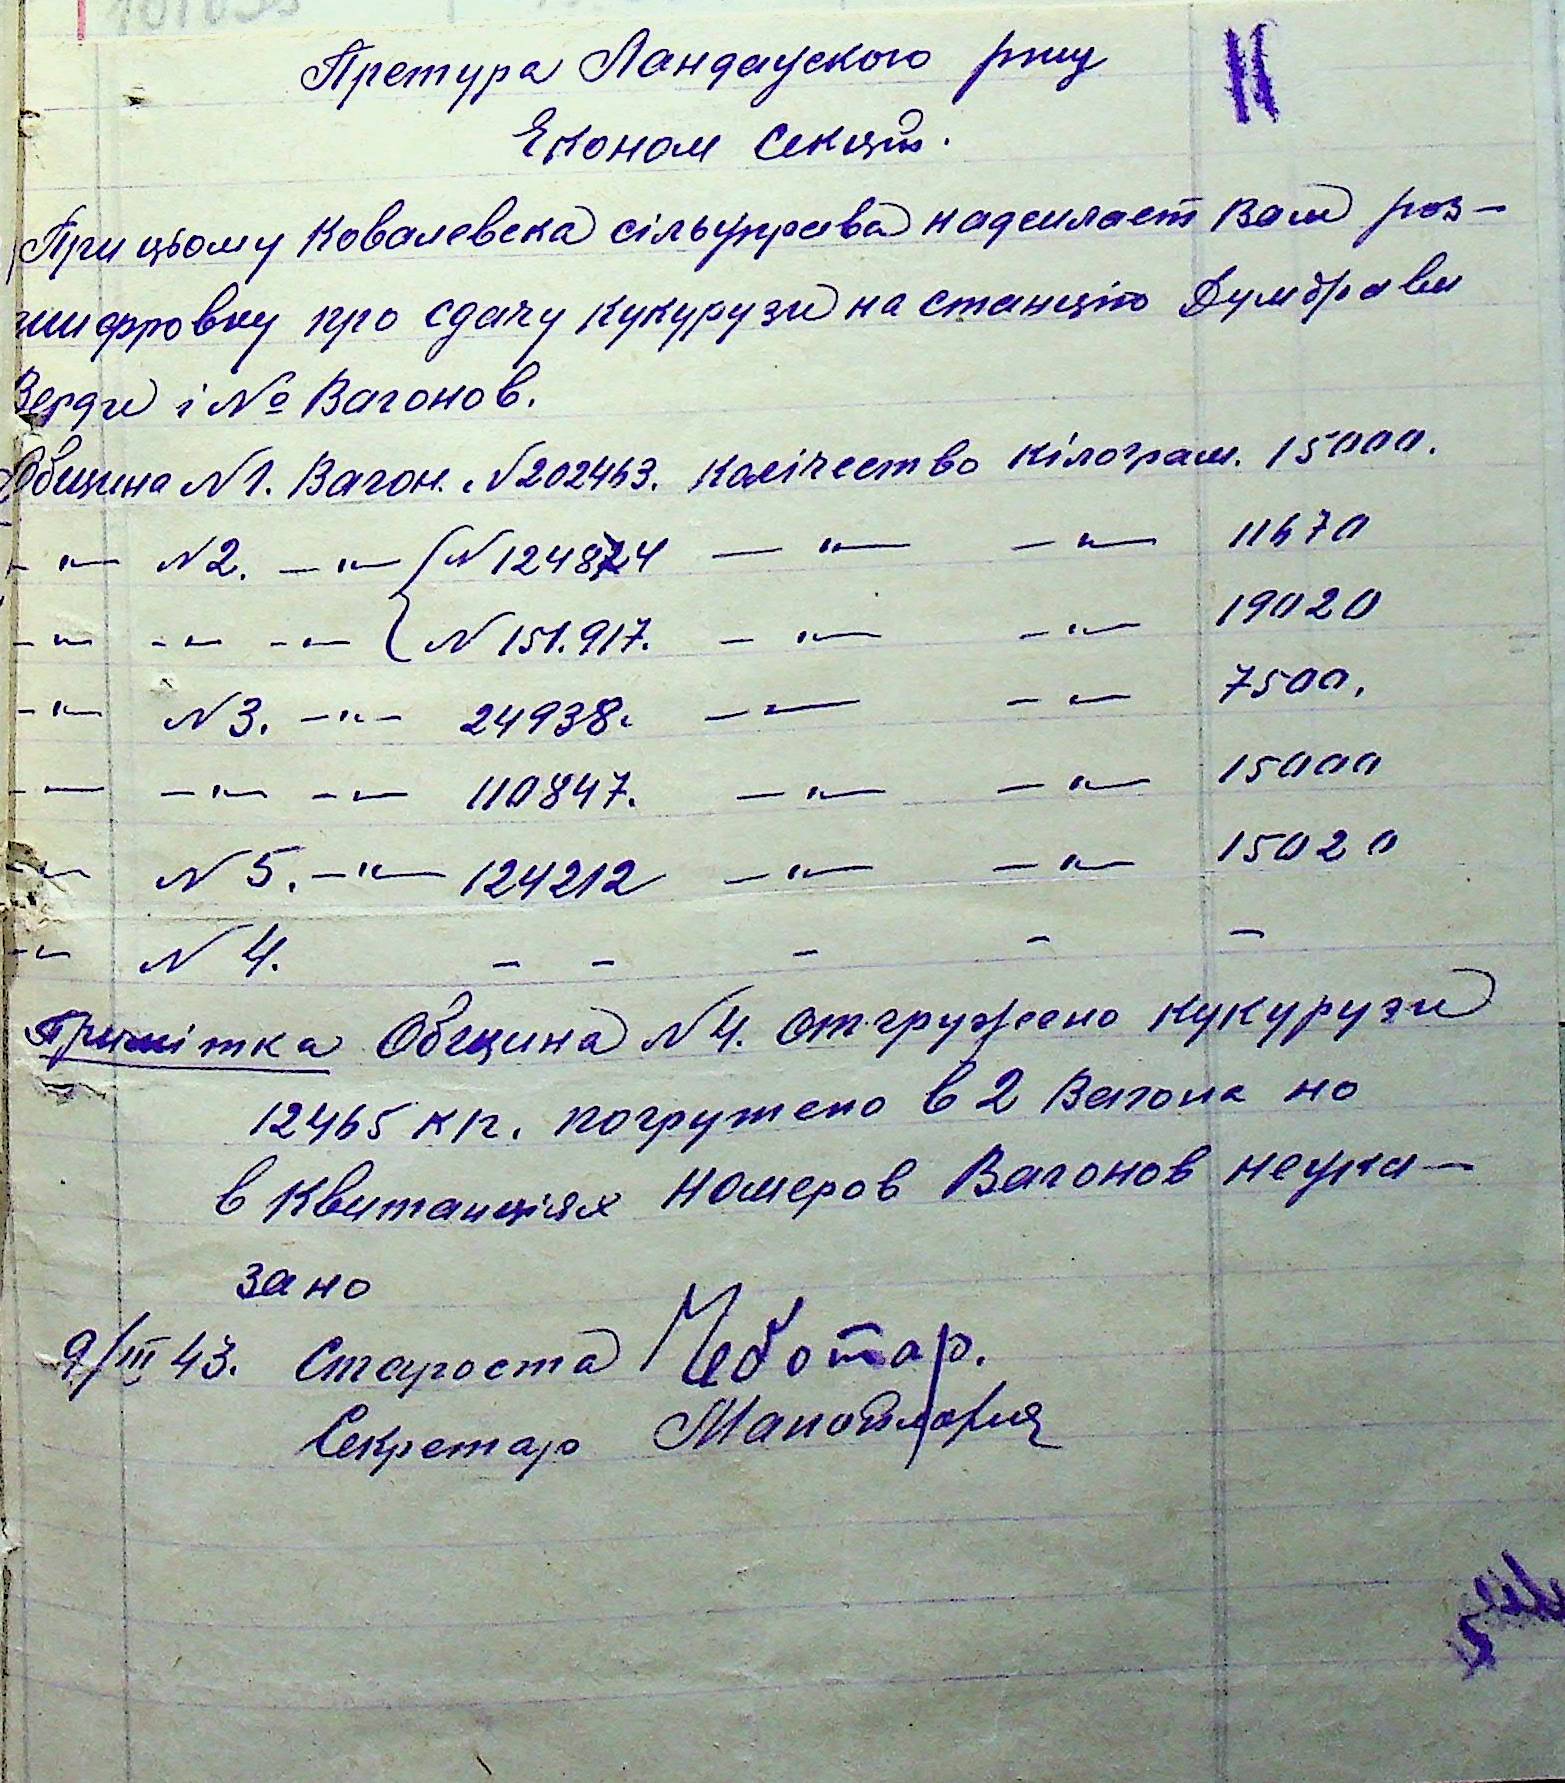 Претура Ландауского р-ну
Економ Секции.
При цьому Ковалевска сільуправа надсилает Вам роз-
шифровку про сдачу кукурузи на станцію Думбрави
Верди і № Вагонов.
Община N1. Вагон. N202463. Колічество кілограм. 15000.
-"- N2. -"- N124874 -"- -"- 11670
-"- -"- -"- N151.917. -"- -"- 19020
-"- N3. -"- 24938. -"- -"- 7500.
-"- -"- -"- 110847. -"- -"- 15000
-"- N5. -"- 124212 -"- -"- 15020
-"- N4. - - - - -
Примітка Община N4. отгружено кукурузи
12465 кг. погружено в 2 Вагона но
в Квитанціях номеров Вагонов неука-
зано
9/III 43. Староста Чеботар.
Секретар